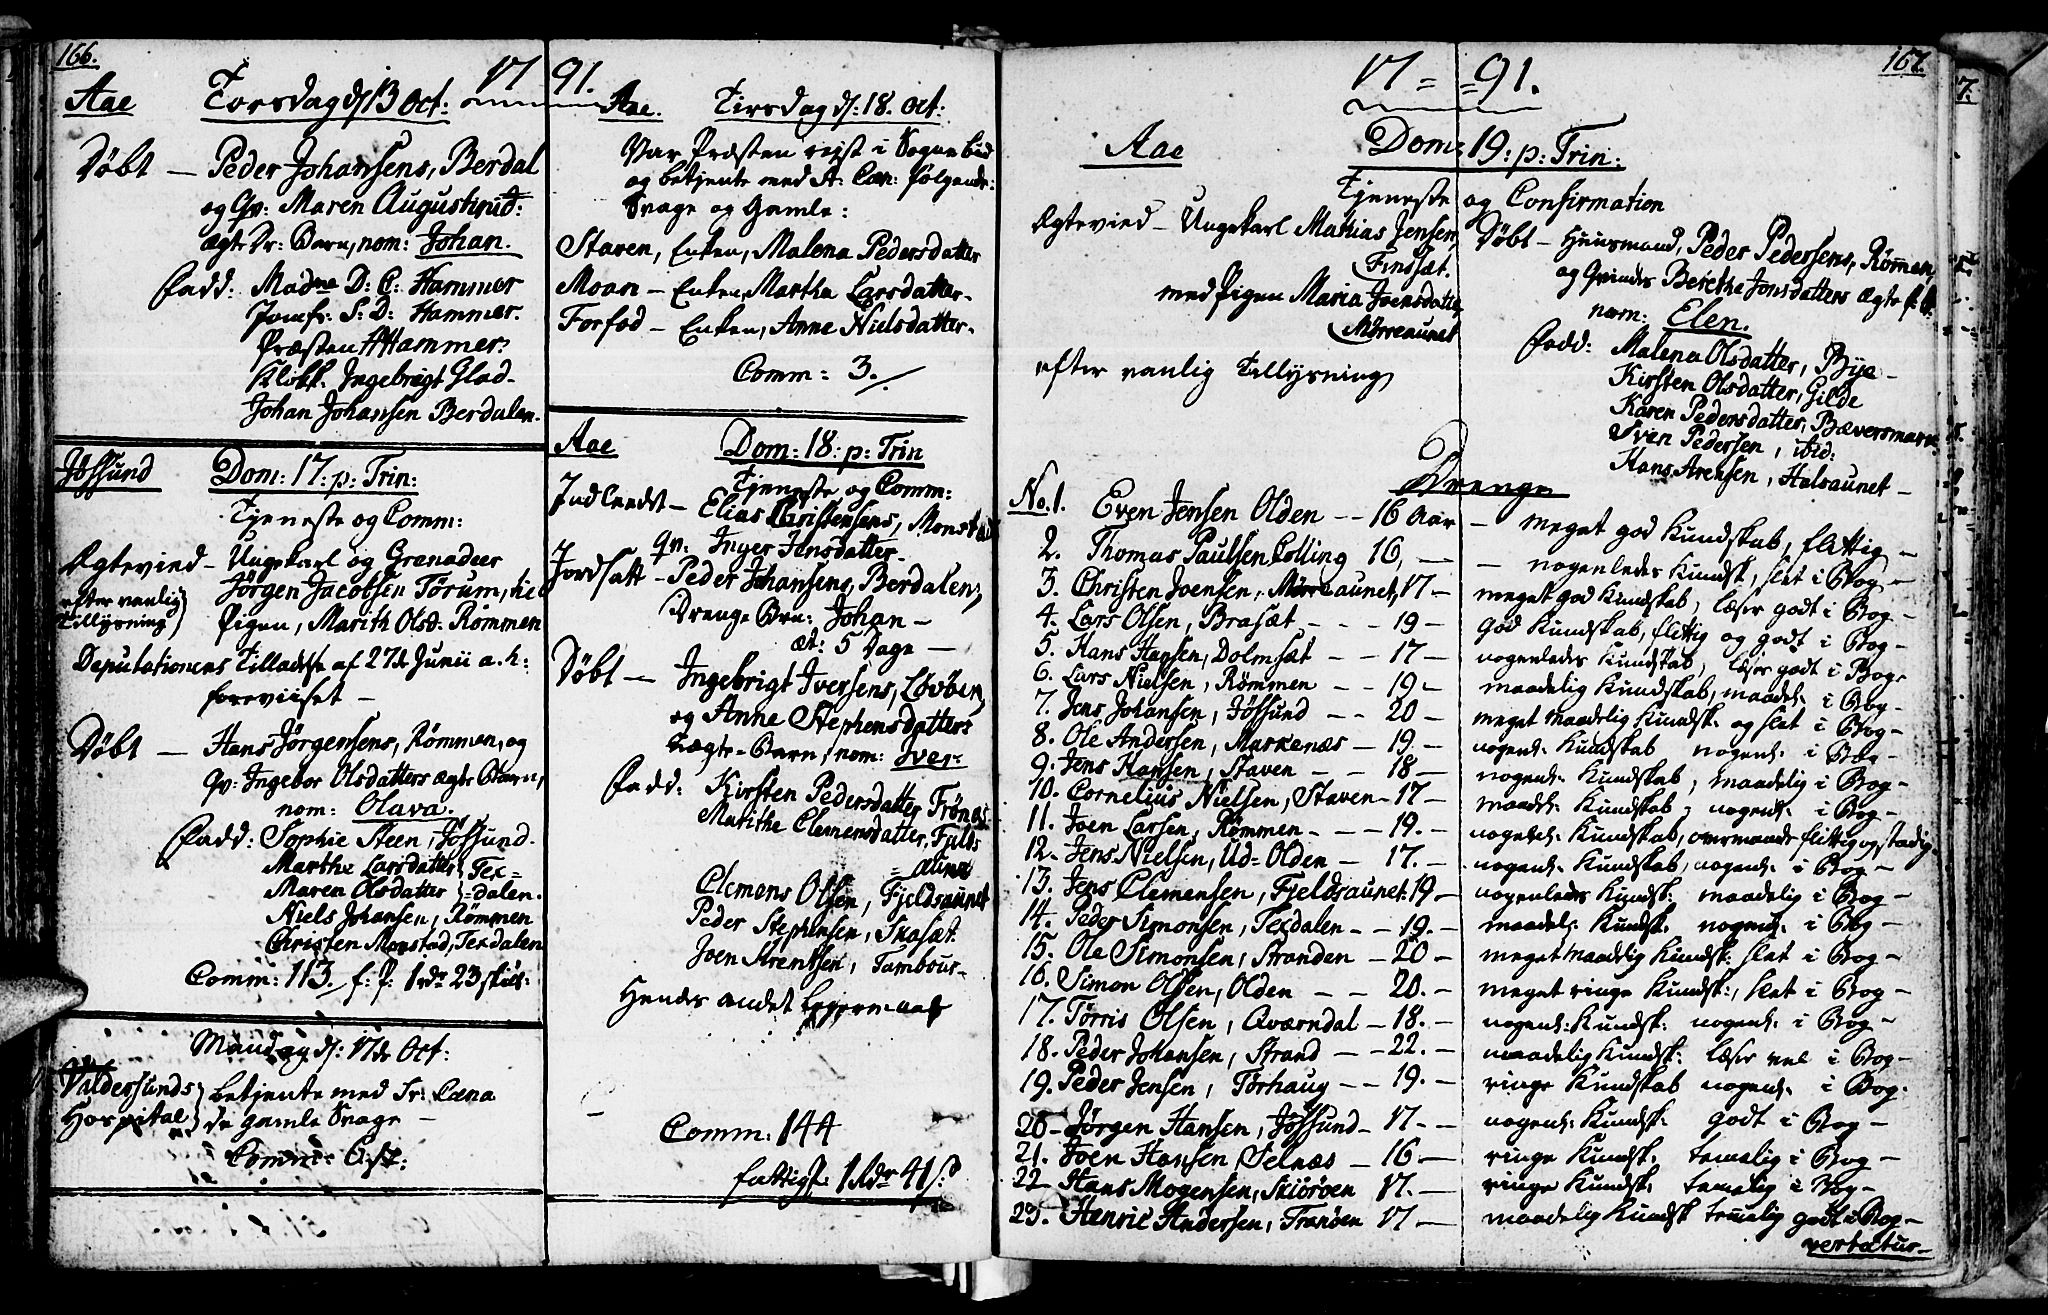 166.
17 91.
Aae Torsdag d: 13 Oct:
Døbt — Peder Johansens, Berdal
og Qv: Maren Augustinut:
ægte Dr: Barn, nom: Johan.
Fadd: Madme D: C: Hammer
Jomfr: S: D: Hammer.
Præsten HHammer:
Klokk: Ingebrigt Glad-
Johan Johansen Berdalen.
Jøssund Dom: 17: p: Trin:
Tjeneste og Comm:
Ægtevied — Ungekarl og Grenadeer
Jørgen Jacobsen Tørum, til
efter vanlig
Tillysning
Pigen, Marith Olsd: Rømmen
Deputationens Tilladelse af 27de Junii a. h:
foreviiset —
Døbt — Hans Jørgensens, Rømmen, og
Qv: Ingebor Olsdatters ægte Barn,
nom: Olava.
Fadd: Sophie Steen, Jøssund.
Marthe Larsdatter Tex=
Maren Olsdatter =dalen.
Niels Johansen, Rømmen
Christen Monstad, Texdalen
Comm: 113. f: P: 1 rdr 23 skil:
Mandag d: 17de Oct:
Valdersunds
Hospital
betjente med Sr: Cæna
de gamle Svage —
Comm:
Aae. Tirsdag d: 18. Oct:
Var Præsten reist i Sognebud
og betjente med A: Cæn: følgende:
Svage og Gamle:
Staven, Enken, Malena Pedersdatter
Moan — Enken, Martha Larsdatter-
Forfod — Enken, Anne Nielsdatter-
Comm: 3.
Aae Dom: 18: p: Trin
Tjeneste og Comm:
Indleedt — Elias Christensens, Monstad
qv: Inger Jensdatter-
Jordsatt — Peder Johansens, Berdalen,
Drenge Brn: Johan —
æt: 5 Dage —
Døbt — Ingebrigt Iversens, Løvøen,
og Anne Stephensdatters
Uægte-Barn, nom: Iver-
Fadd: Kirsten Pedersdatter, Frønes
Marithe Clemensdatter, Fields
=aunet
Clemens Olsen, Fjeldsaunet
Peder Stephensen, Skasæt.
Joen Arentsen, Tambour-
Hendes andet Leyermaal
Comm: 144
fattigf: 1 Rdr 41 s:
167.
17 = =91.
Aae Dom: 19: p: Trin:
Tjeneste og Confirmation
Ægtevied — Ungekarl Mathias Jensen,
Finssæt.
med Pigen Maria Joensdatter,
Mørreaunet
efter vanlig Tillysning
Døbt — Huusmand, Peder Pedersens, Rømmen
og Qvindes Berethe Jonsdatters ægte
nom: Elen.
Fadd: Malena Olsdatter, Bye —
Kirsten Olsdatter, Gilde
Karen Pedersdatter, Bæversmark
Sven Pedersen, ibid:
Hans Arensen, Halsaunet —
Drenge
No. 1. Even Jensen Olden — 16 Aar — meget god Kundskab, flittig —
2. Thomas Paulsen Lolling 16, — — nogenledes Kundsk, slet i Bog —
3. Christen Joensen, Mørreaunet, 17 — meget god Kundskab, læser godt i Bog —
4. Lars Olsen, Brasæt — 19 — God Kundskab, flittig og godt i Bog —
5. Hans Hansen, Dolmsæt — 17 — nogenledes Kundskab, læser godt i Bog —
6. Lars Nielsen, Rømmen — 19 — maadelig Kundskab, maadel: i Bog —
7. Jens Johansen, Jøssund — 20 — meget maadelig Kundsk: og slet i Bog —
8. Ole Andersen, Markenæs — 19 — nogenl: Kundskab nogenl: i Bog —
9. Jens Hansen, Staven — 18 — nogenl: Kundskab, maadelig i Bog —
10. Cornelius Nielsen, Staven — 17 — maadel: Kundskab, nogenl: i Bog —
11. Joen Larsen, Rømmen — 19. — nogenl: Kundskab, overmaade flittig og stadig.
12. Jens Nielsen, Ud=Olden — 17. — nogenl: Kundskab, nogenl: i Bog —
13. Jens Clemensen, Fjeldsaunet. 19 — nogenledes Kundsk: maadelig i Bog —
14. Peder Simonsen, Texdalen — 19. — maadel: Kundsk: nogenl: i Bog —
15. Ole Simonsen, Stranden — 20 — meget maadelig Kundsk: slet i Bog —
16. Simon Olsen, Olden — 20. — meget ringe Kundsk:, slet i Bog —
17. Tørris Olsen, Qværndal — 18. — nogenl: Kundsk: nogenl: i Bog —
18. Peder Johansen, Strand — 22. — maadelig Kundsk: læser vel i Bog —
19. Peder Jensen, Tørhaug — 19. — ringe Kundskab nogenl: i Bog.
20 — Jørgen Hansen, Jøssund — 17. — nogenl: Kundsk: godt i Bog —
21. Joen Hansen, Selnæs — 16 — ringe Kundsk: temelig i Bog —
22 — Hans Mogensen, Skiørøen 17. — ringe Kundsk: temelig i Bog —
23. Henric Andersen, Tranøen 17 — maadelig Kundsk temelig godt i Bog —
vertatur —
7.